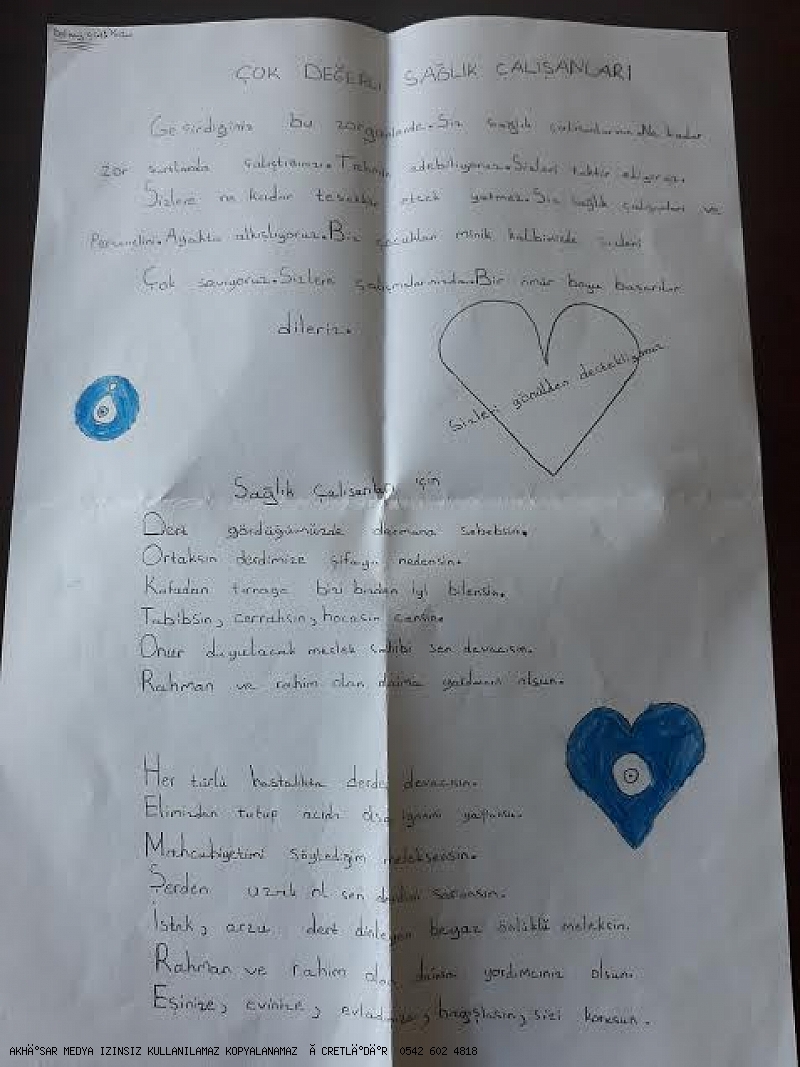 ÇOK DEĞERLİ SAĞLIK ÇALIŞANLARI
Geçirdiğimiz bu zor günlerde. Siz sağlık çalışanlarının Ne kadar
zor şartlarda çalıştığınızı. Tahmin edebiliyoruz. Sizleri taktir ediyoruz.
Sizlere ne kadar teşekkür etsek yetmez. Siz sağlık çalışanları ve
Personelini. Ayakta alkışlıyoruz. Biz çocuklar minik kalbimizde sizleri
Çok seviyoruz. Sizlere çalışmalarınızda. Bir ömür boyu başarılar
dileriz.
Sizleri gönülden destekliyoruz
Sağlık Çalışanları için
Dert gördüğümüzde dermana sebebsin.
Ortaksın derdimize şifaya nedensin.
Kafadan tırnağa bizi bizden iyi bilensin.
Tabibsin, cerrahsın, hocasın cansın.
Onur duyulacak meslek sahibi sen devacısın.
Rahman ve rahim olan daima yardımcın olsun.
Her türlü hastalıkta derde devacısın.
Elimizden tutup acıda olsa iğnemi yaparsın.
Mahcubiyetimi söylediğim meleksensin.
Şerden uzak ol sen derdimi soransın.
İstek, arzu dert dinleyen beyaz önlüklü meleksin.
Rahman ve rahim olan daima yardımcınız olsun.
Eşinize, evinize, evladınıza, bağışlasın, sizi korusun.
AKHİSAR MEDYA IZINSIZ KULLANILAMAZ KOPYALANAMAZ 0542 602 4818